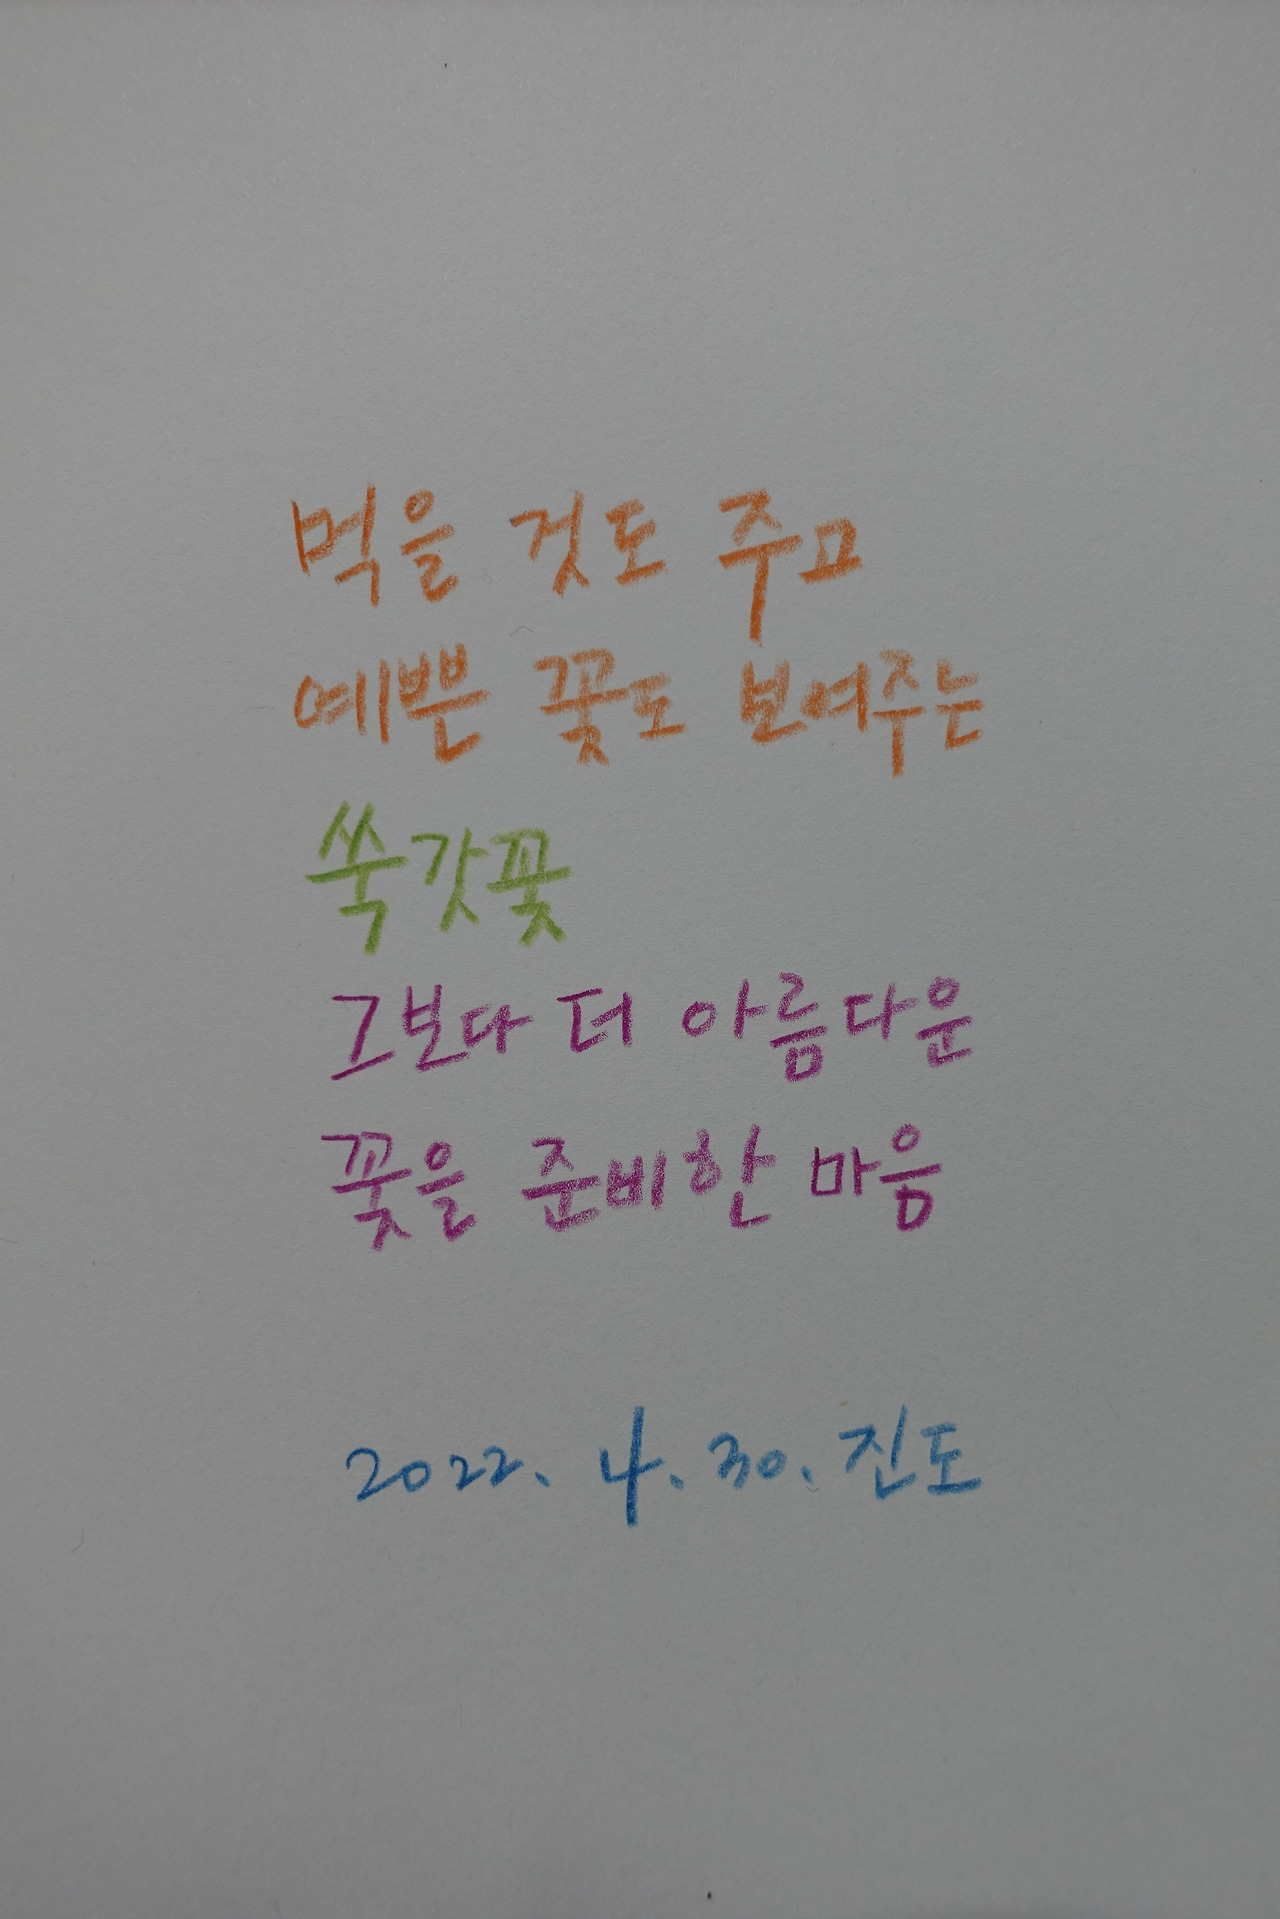 먹을 것도 주고
예쁜 꽃도 보여주는
쑥갓꽃
그보다 더 아름다운
꽃을 준비한 마음
2022. 4. 30. 진도